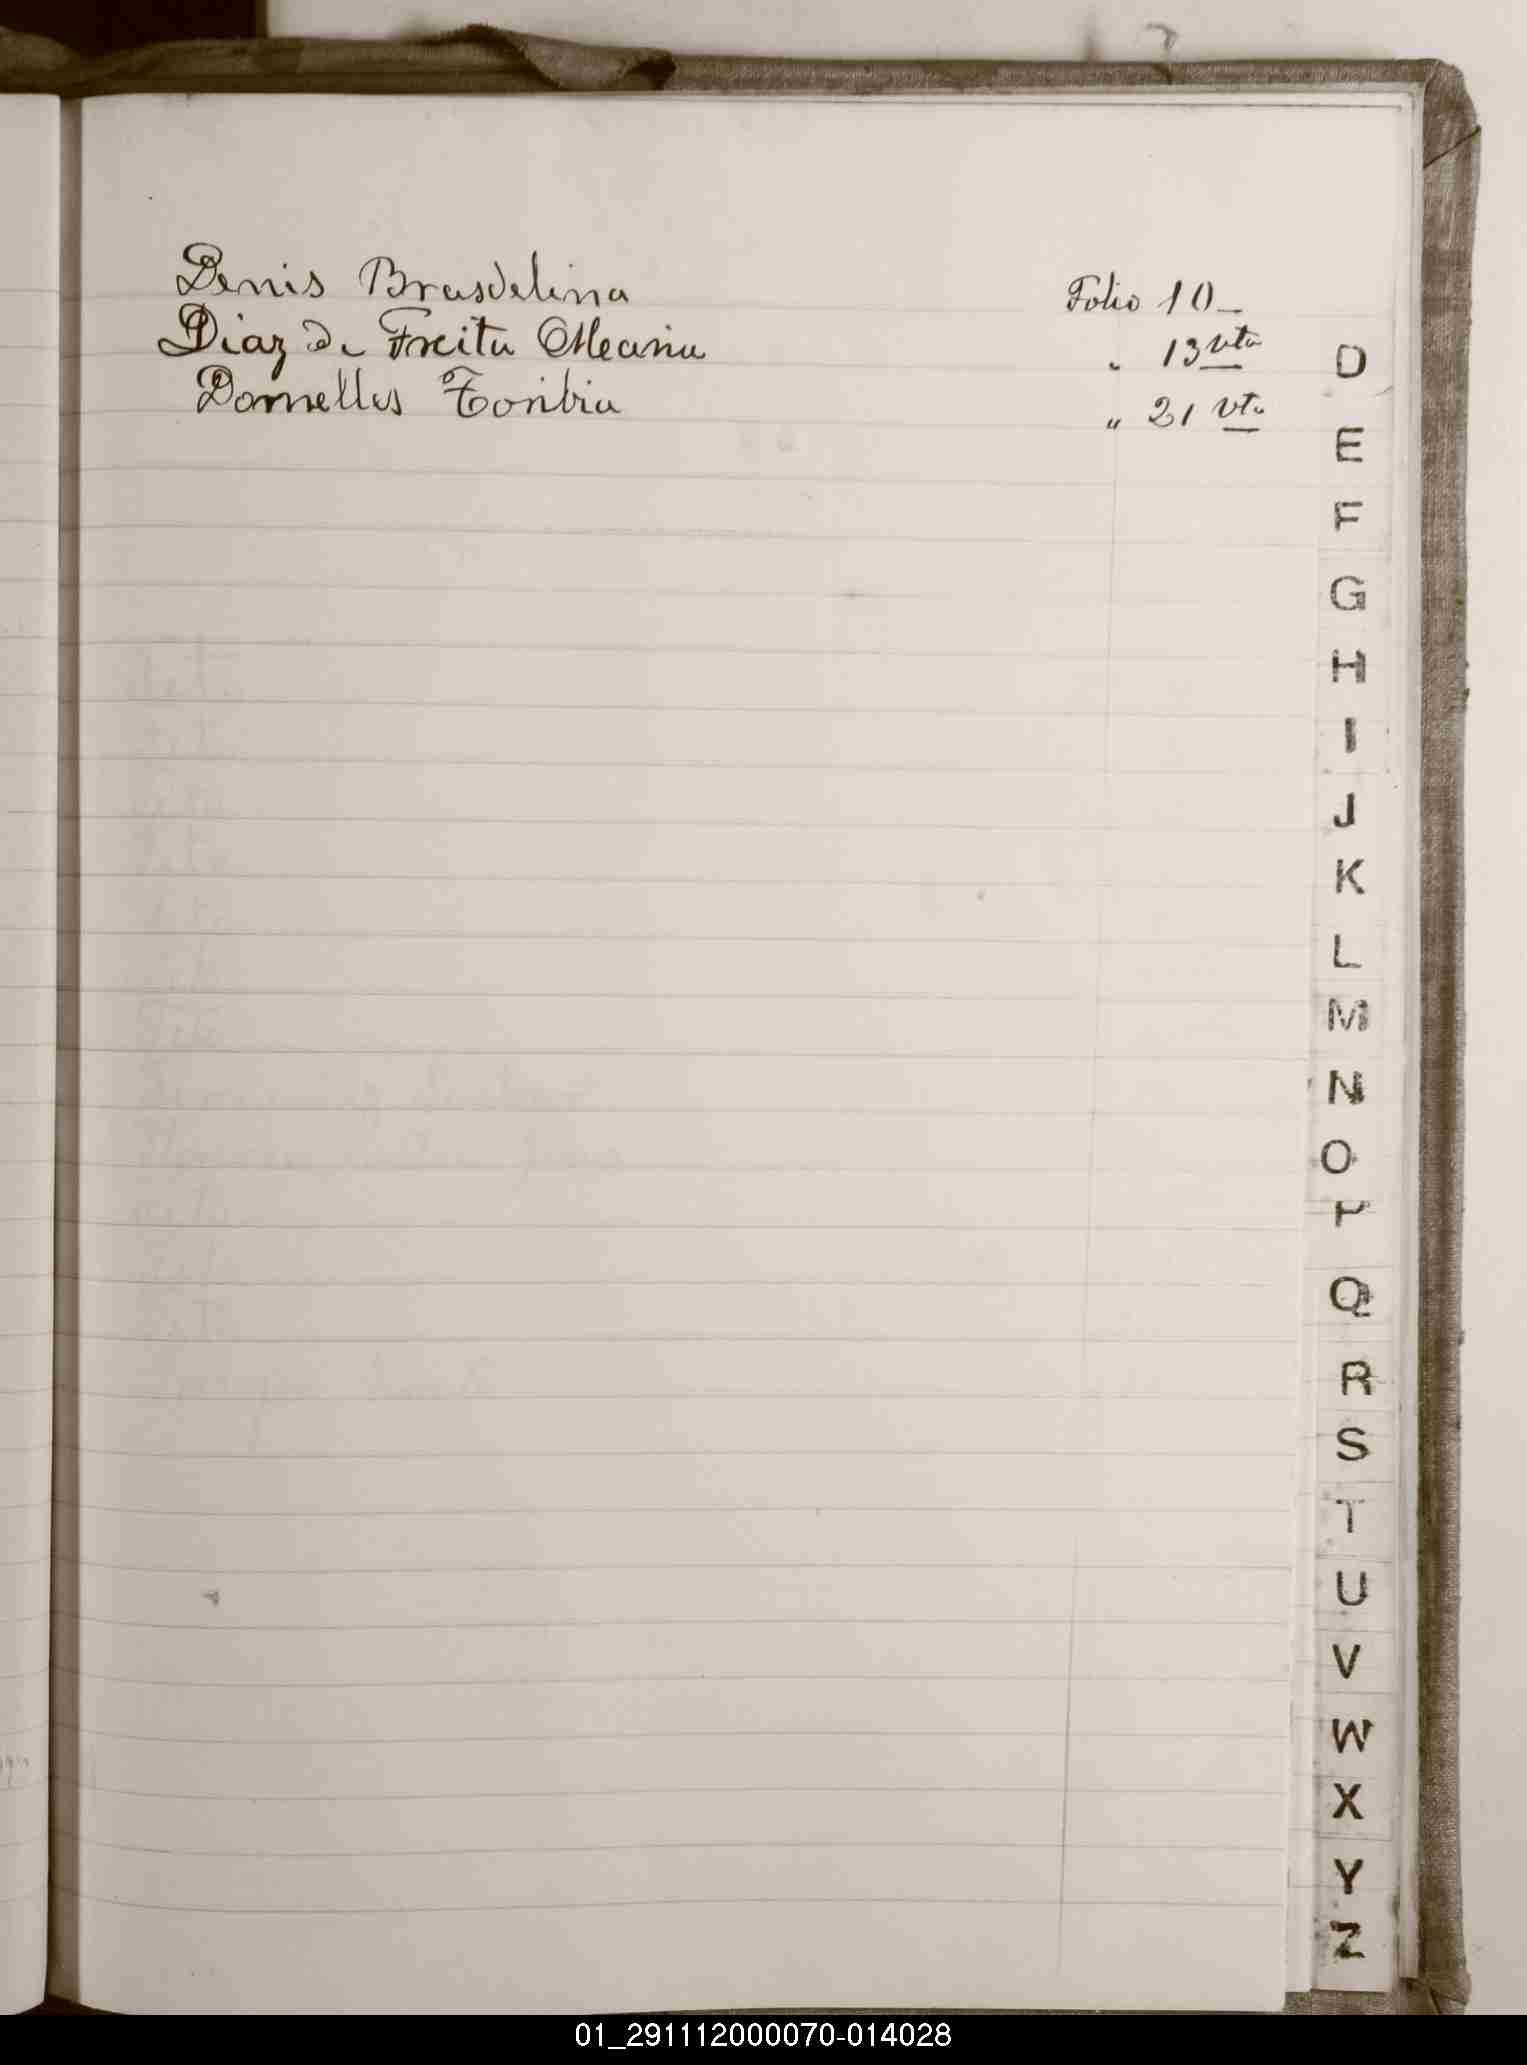 Denis Brasdelina Folio 10_
Diaz de Freita Maria " 13 vta
Dornelles Toribia " 21 vta
D
E
F
G
H
I
J
K
L
M
N
O
P
Q
R
S
T
U
V
W
X
Y
Z
01_291112000070-014028